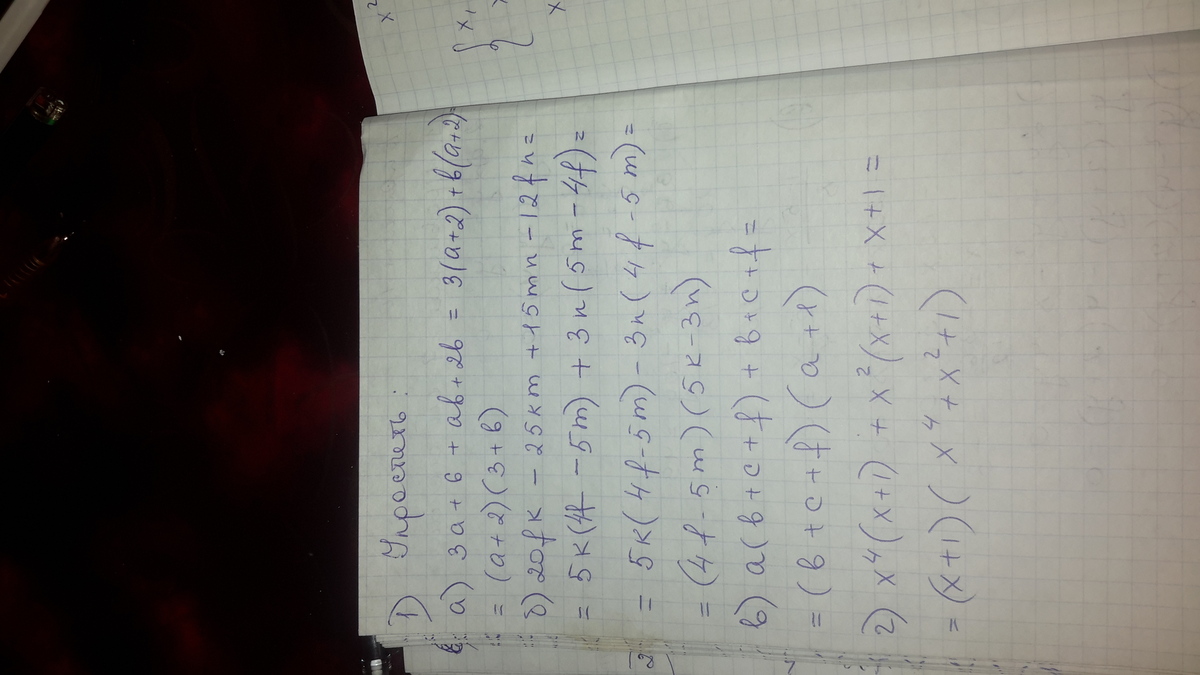 1) Упростить:
а) 3a + 6 + ab + 2b = 3(a+2) + b(a+2) =
= (a+2)(3+b)
б) 20fk - 25km + 15mn - 12fn =
= 5k(4f - 5m) + 3n(5m - 4f) =
= 5k(4f - 5m) - 3n(4f - 5m) =
= (4f - 5m)(5k - 3n)
в) a(b+c+f) + b+c+f =
= (b+c+f)(a+1)
г) x⁴(x+1) + x²(x+1) + x+1 =
= (x+1)(x⁴ + x² + 1)